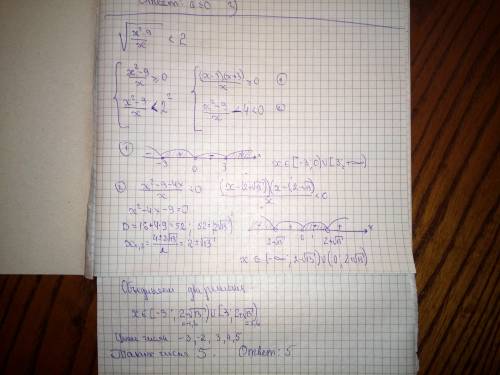 Ответ: a>0 3)
√((x²-9)/x) < 2
{ (x²-9)/x ≥ 0   { (x-3)(x+3)/x ≥ 0 ①
{ (x²-9)/x < 2²   { (x²-9)/x - 4 < 0 ②
① - + - + x
-3 0 3
x ∈ [-3, 0) ∪ [3, +∞)
② (x²-9-4x)/x < 0   (x-(2+√13))(x-(2-√13))/x < 0
x²-4x-9=0
D = 16+4·9=52; 52=2√13²
x₁,₂ = (4±2√13)/2 = 2±√13
2-√13 0 2+√13 x
x ∈ (-∞; 2-√13) ∪ (0; 2+√13)
Объединяем два решения
x ∈ [-3; 2-√13) ∪ [3, 2+√13)
≈-1,6 ≈5,6
Целые числа -3, -2, 3, 4, 5
Таких чисел 5. Ответ: 5